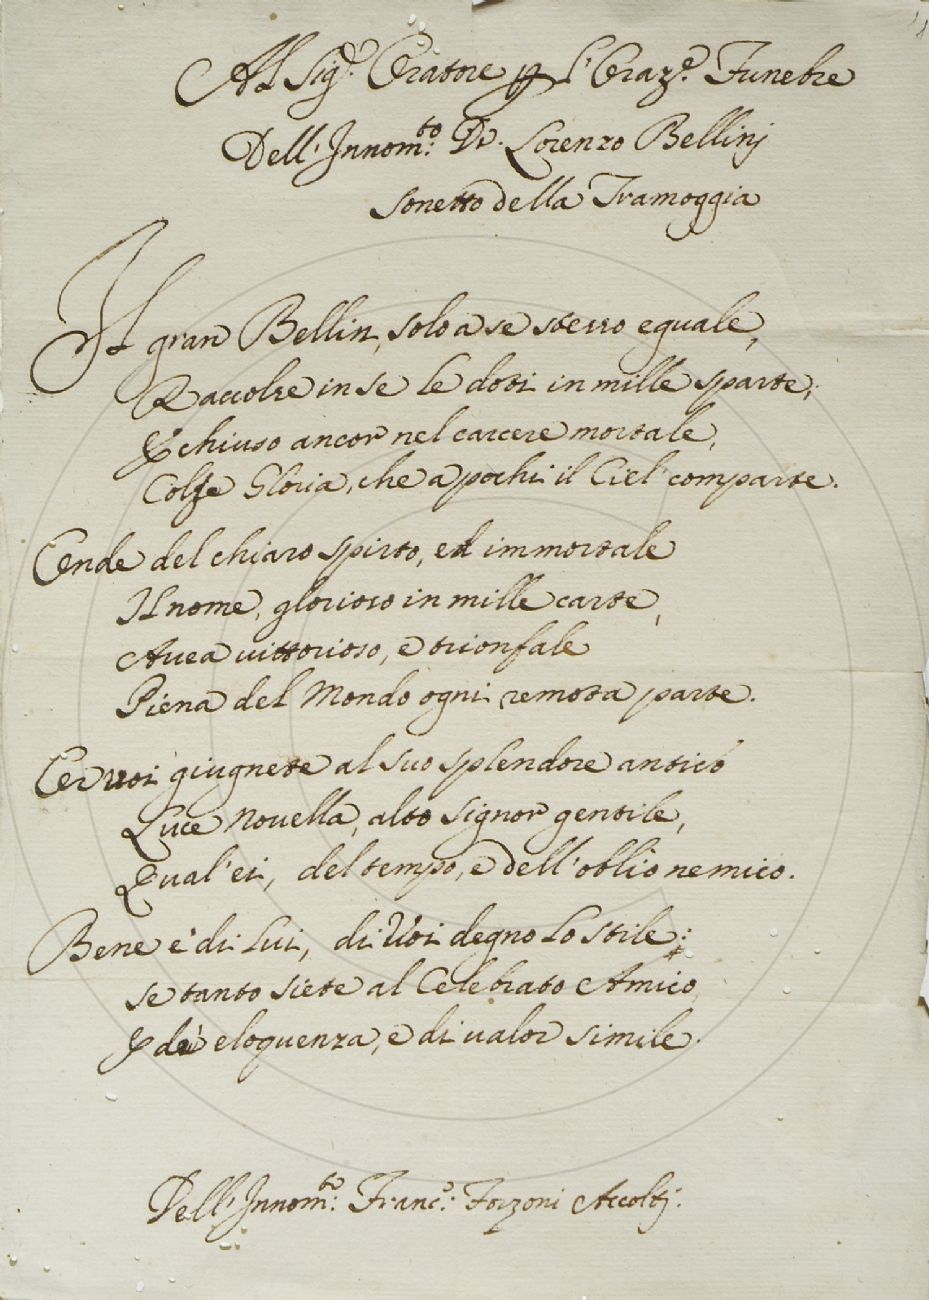 Al Sig.r Oratore p l'Oraz.e Funebre
Dell'Innom.to Dr. Lorenzo Bellinj
Sonetto della Tramoggia
Il gran Bellin, solo a se stesso eguale,
Raccolse in se le doti in mille sparte;
E chiuso ancor nel carcere mortale,
Colse Gloria, che a pochi il Ciel comparte.
Onde del chiaro spirto, ed immortale
Il nome, glorioso in mille carte,
Avea vittorioso, e trionfale
Piena del Mondo ogni remota parte.
Or voi giugnete al suo splendore antico
Luce Novella, alto Signor gentile,
Qual'ei, del tempo, e dell'oblio nemico.
Bene è di Lui, di Voi degno Lo stile;
Se tanto siete al Celebrato Amico
E d'eloquenza, e di valor simile.
Dell'Innom.to Franc.o Forzoni Accoltj.